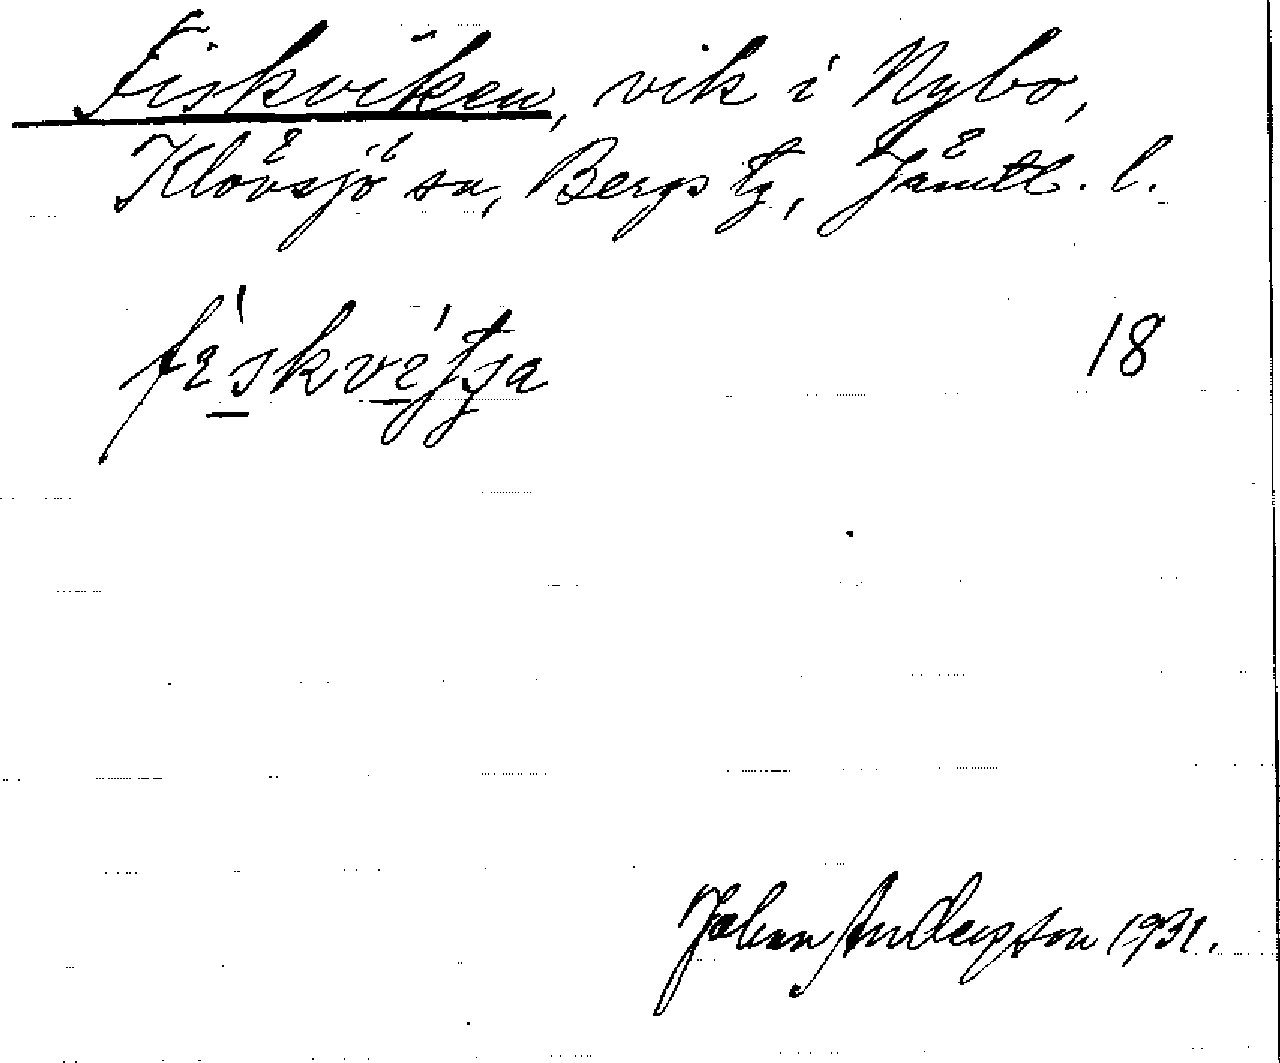 Fiskviken, vik i Nybo,
Klövsjö sn, Bergs tg, Jämtl. l.
18
Johan Anderson 1931.